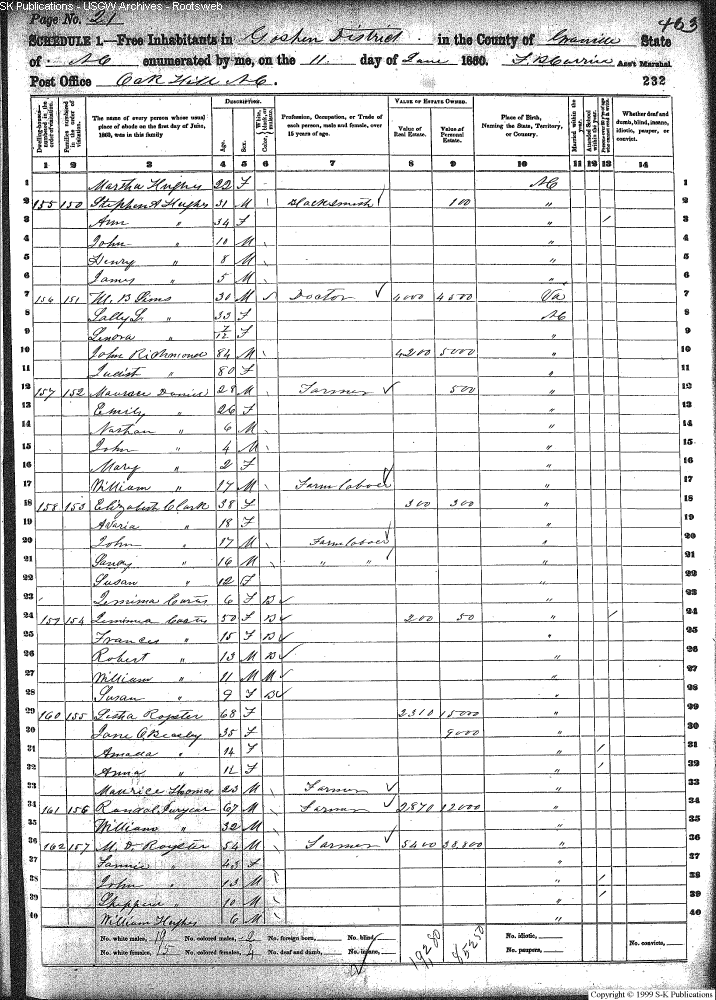 SK Publications - USGW Archives - Rootsweb
Page No. 21
463
SCHEDULE 1.—Free Inhabitants in Goshen District in the County of Granville State
of NC enumerated by me, on the 11 day of June 1860. Ass't Marshal
Post Office Oak Hill NC. 232
Dwelling-houses—numbered in the order of visitation.
Families numbered in the order of visitation.
The name of every person whose usual place of abode on the first day of June, 1860, was in this family
DESCRIPTION.
Age.
Sex.
Color, White, black, or mulatto.
Profession, Occupation, or Trade of each person, male and female, over 15 years of age.
VALUE OF ESTATE OWNED.
Value of Real Estate.
Value of Personal Estate.
Place of Birth, Naming the State, Territory, or Country.
Married within the year.
Attended School within the year.
Whether deaf and dumb, blind, insane, idiotic, pauper, or convict.
1 2 3 4 5 6 7 8 9 10 11 12 13 14
1 Martha Hughes 22 F NC 1
2 155 150 Stephen A Hughes 31 M Blacksmith 100 " 2
3 Ann " 34 F " / 3
4 John " 10 M " 4
5 Henry " 8 M " 5
6 James " 5 M " 6
7 156 151 M. B Sims 30 M Doctor 4000 4500 Va 7
8 Sally S. " 33 F NC 8
9 Lenora " 7/12 F " 9
10 John Richmond 84 M 4200 5000 " 10
11 80 F " 11
12 157 152 Daniel 28 M Farmer 500 " 12
13 Emily " 26 F " 13
14 Nathan " 6 M " 14
15 John " 4 M " 15
16 Mary " 2 F " 16
17 William " 17 M Farm labour " 17
18 158 153 Elizabeth Clark 38 F 300 300 " 18
19 " 18 F " 19
20 John " 17 M Farm labour " 20
21 " 16 M " " " 21
22 Susan " 12 F " 22
23 6 F B " 23
24 159 154 50 F B 200 50 " / 24
25 Frances " 15 F B " 25
26 Robert " 13 M B " 26
27 William " 11 M M " 27
28 Susan " 9 F B " 28
29 160 155 Royster 68 F 2310 15000 " 29
30 Jane O Beasly 35 F 9000 " 30
31 " 14 F " / 31
32 Anna " 12 F " / 32
33 Maurice Thomas 23 M Farmer " 33
34 161 156 Randol Duryear 67 M Farmer 2870 12000 " 34
35 William " 32 M " 35
36 162 157 M. D. Royster 54 M Farmer 5400 38,800 " 36
37 Fannie " 43 F " 37
38 John " 13 M " / 38
39 " 10 M " / 39
40 William Hughes 6 M " 40
No. white males, 19 No. colored males, 2 No. foreign born, No. blind, 19280 85250 No. idiotic, No. convicts,
No. white females, 15 No. colored females, 4 No. deaf and dumb, No. insane, No. paupers,
Copyright © 1999 S-K Publications